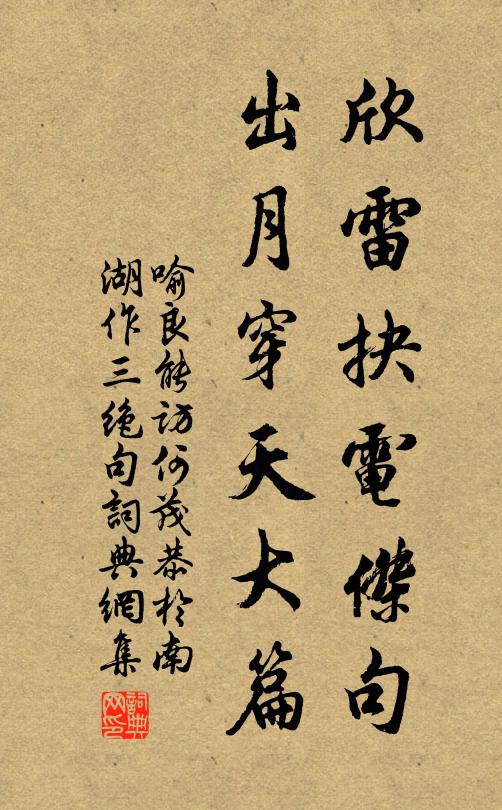 欣雷抉電傑句
出月穿天大篇
喻良能訪何茂恭於南
湖作三絶句詞典網集
詞典
网印